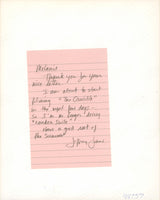 Melanie
Thank you for your
nice letter.
I am about to start
filming "The Crucible"
in the next few days
so I'm no longer doing
"London Suite".
Have a great rest of
the Summer